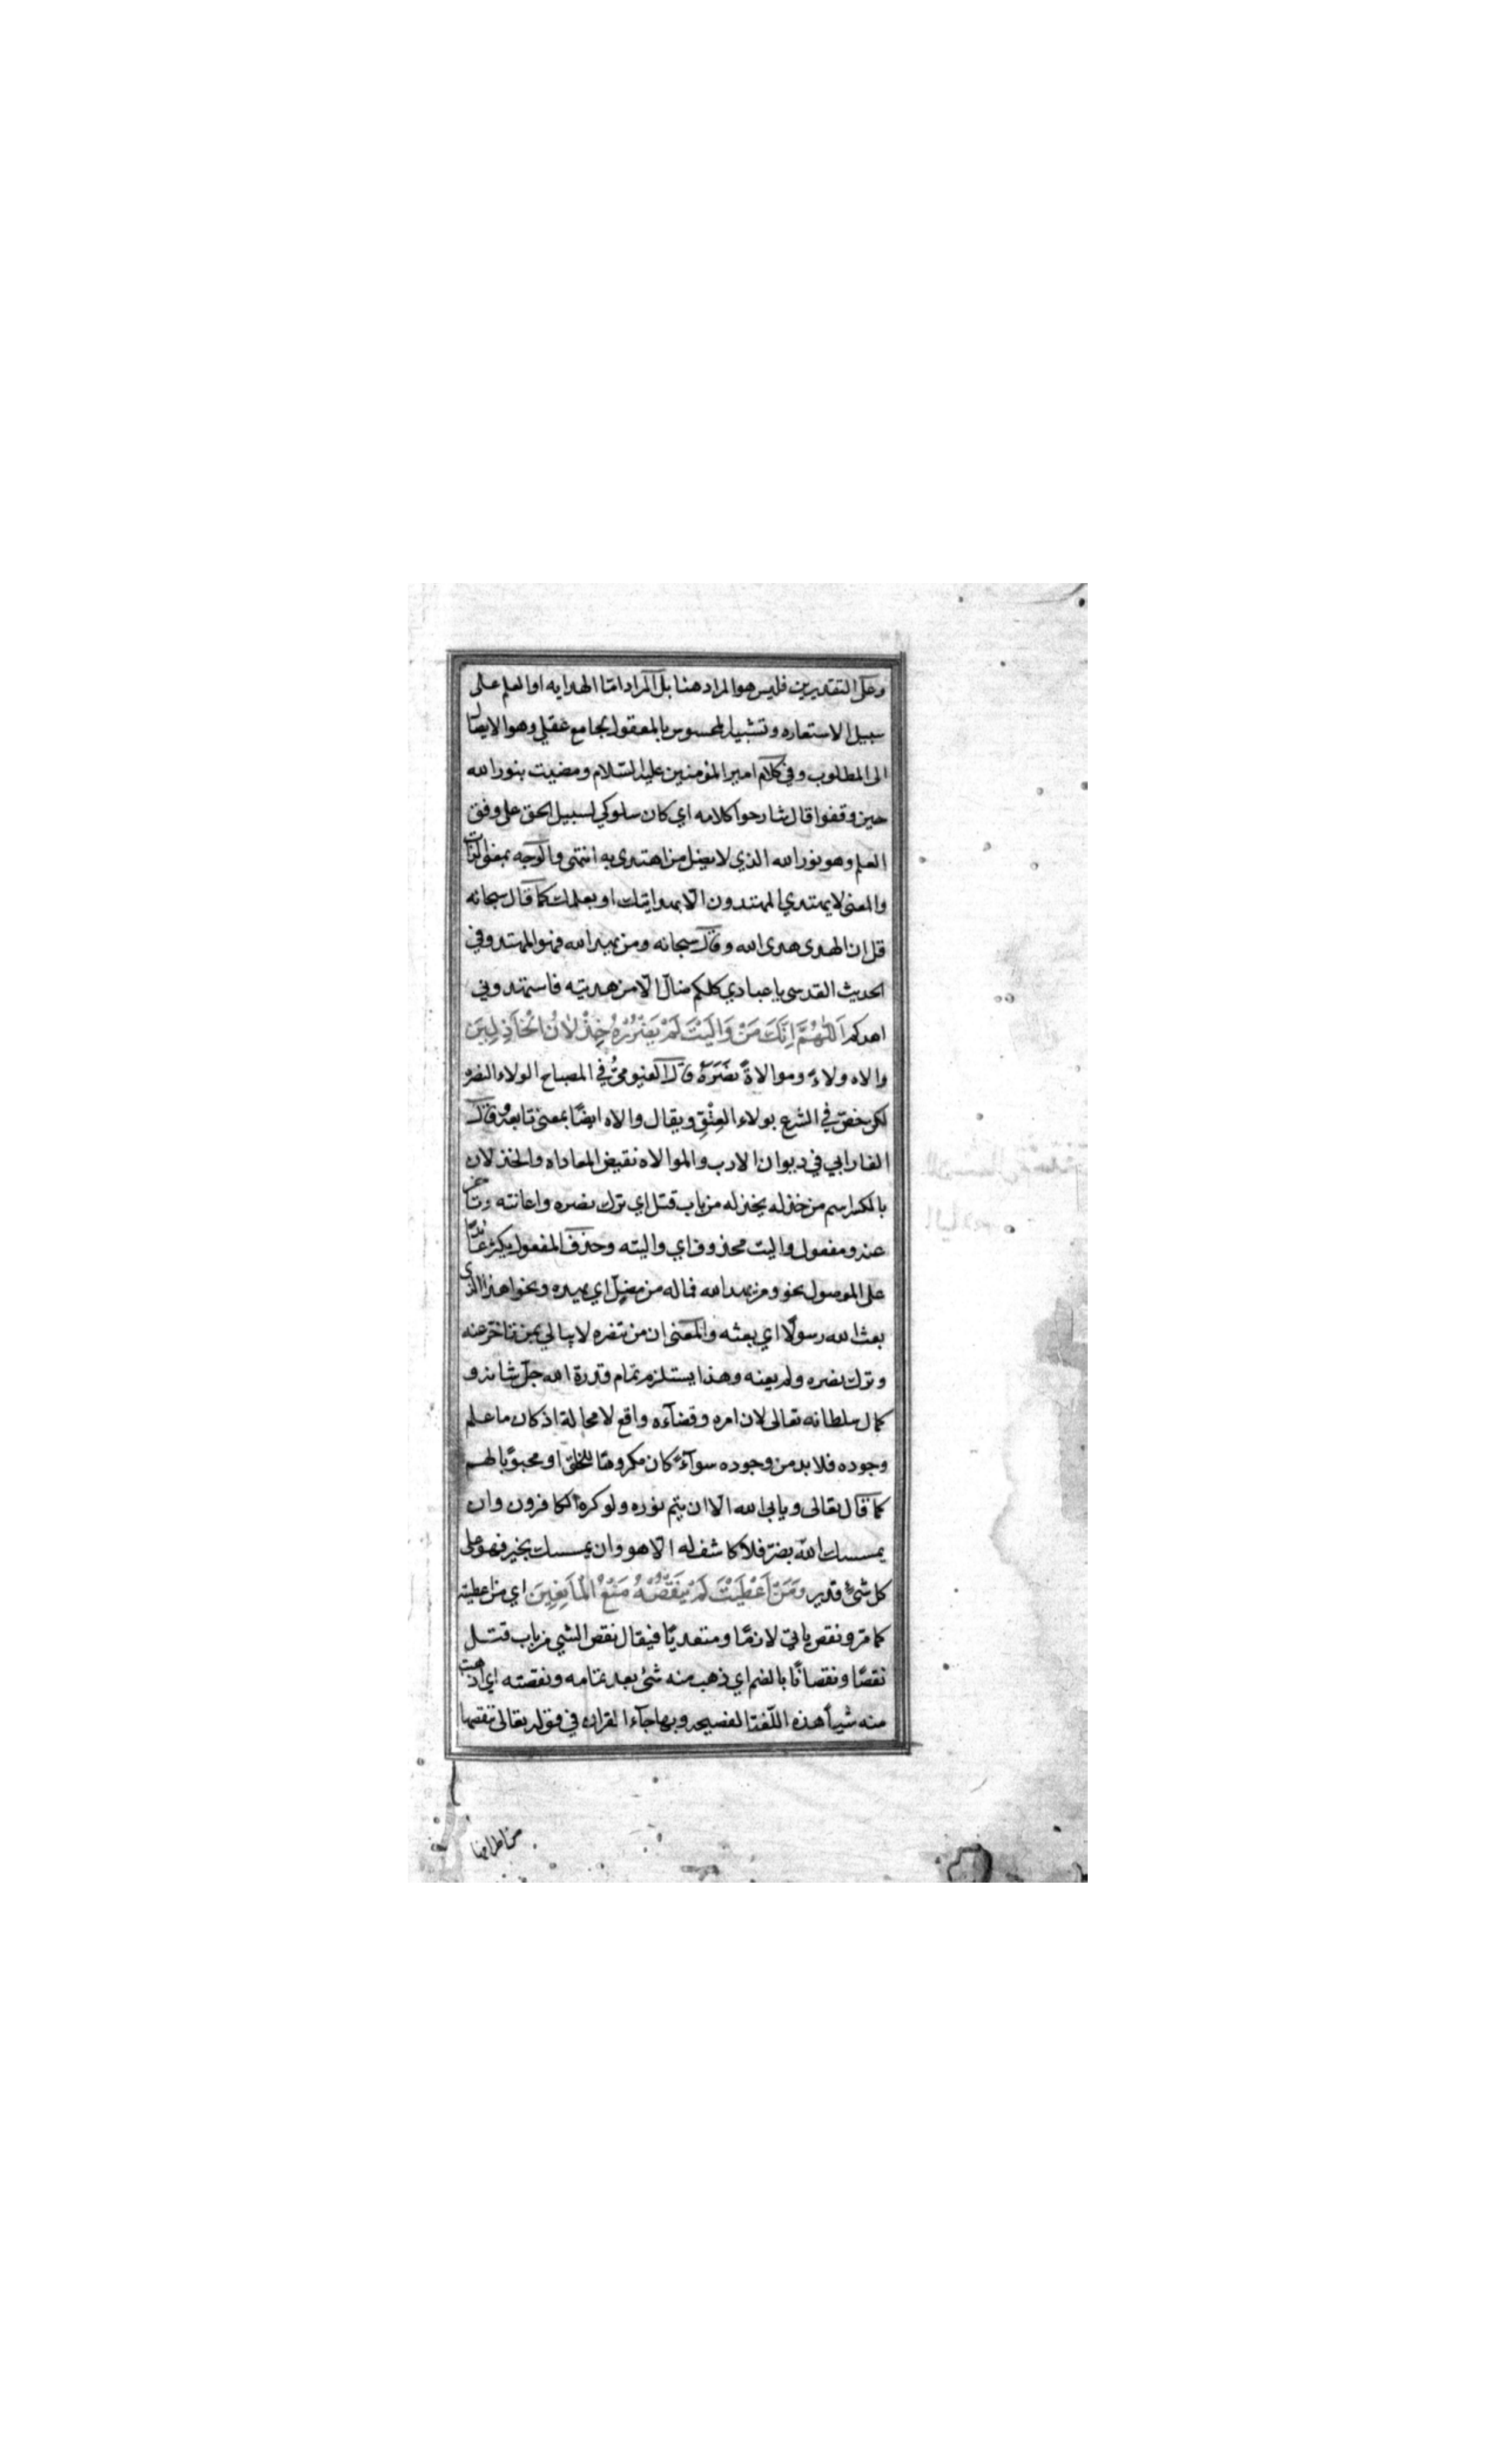 وعلى التقديرين فليس هو المراد هنا بل المراد امّا الهدايه او العلم على
سبيل الاستعاره وتشبيل المحسوس بالمعقول بجامع عقلي وهو الايصال
الى المطلوب وفي كلام امير المؤمنين عليه السّلام ومضيت بنور الله
حين وقفوا قال شارحوا كلامه اي كان سلوكي لسبيل الحق على وفق
العلم وهو نور الله الذي لا يضل من اهتدى به انتهى و
والمعنى لا يهتدي المهتدون الّا بهدايتك او بعلمك كما قال سبحانه
قل ان الهدى هدى الله وقال سبحانه ومن يهد الله فهو المهتد وفي
الحديث القدسي يا عبادي كلكم ضالّ الّا من هديته فاستهدوني
اهدكم اَللّهُمَّ اِنَّكَ مَنْ وَالَيْتَ لَمْ يَضْرُرْهُ خِذْلَانُ الْخَاذِلِينَ
والاه ولاءً وموالاةً نصَرَهُ قال الفيومي في المصباح الولاء النصره
لكن خصّ في الشرع بولاء العِتْقِ ويقال والاه ايضًا بمعنى تابعه وقال
الفارابي في ديوان الادب والموالاه نقيض المعاداه والخذلان
بالكسر اسم من خذله يخذله من باب قتل اي ترك نصره واعانته وتاخر
عنه ومفعول واليت محذوف اي واليته وحذف المفعول يكثر عائدًا
على الموصول نحو ومن يهد الله فما له من مضلّ اي يهده ونحو اهذا الذي
بعث الله رسولًا اي بعثه والمعنى ان من تنصره لا يبالي بمن تاخّر عنه
وترك نصره ولم يعنه وهذا يستلزم تمام قدرة الله جلّ شانه و
كمال سلطانه تعالى لان امره وقضآءه واقع لا محالة اذ كان ما علم
وجوده فلا بد من وجوده سوآءً كان مكروهًا للخلق او محبوبًا لهم
كما قال تعالى ويابى الله الّا ان يتم نوره ولو كره الكافرون وان
يمسسك الله بضرّ فلا كاشف له الّا هو وان يمسسك بخير فهو على
كل شئٍ قدير وَمَنْ اَعْطَيْتَ لَمْ يَنْقُصْهُ مَنْعُ الْمَانِعِينَ اي من اعطيته
كما مرّ ونقص ياتي لازمًا ومتعديًا فيقال نقص الشي من باب قتل
نقصًا ونقصانًا بالضم اي ذهب منه شئ بعد تمامه ونقصته اي اذهبت
منه شيأ هذه اللّغة الفصيحه وبها جآء القران في قوله تعالى ننقصها
من اطرافها